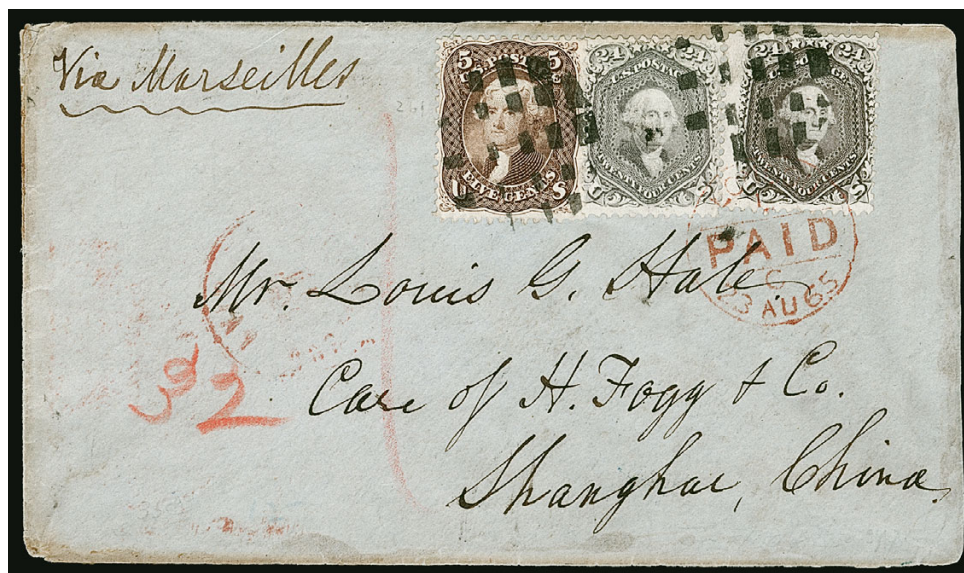 Via Marseilles
5 5
U.S. POSTAGE
FIVE CENTS
U S
24 24
U.S. POSTAGE
TWENTY FOUR CENTS
U S
24 24
U.S. POSTAGE
TWENTY FOUR CENTS
U S
PAID
C
23 AU 65
Mr. Louis G. Hale.
Care of H. Fogg & Co.
Shanghae, China.
2